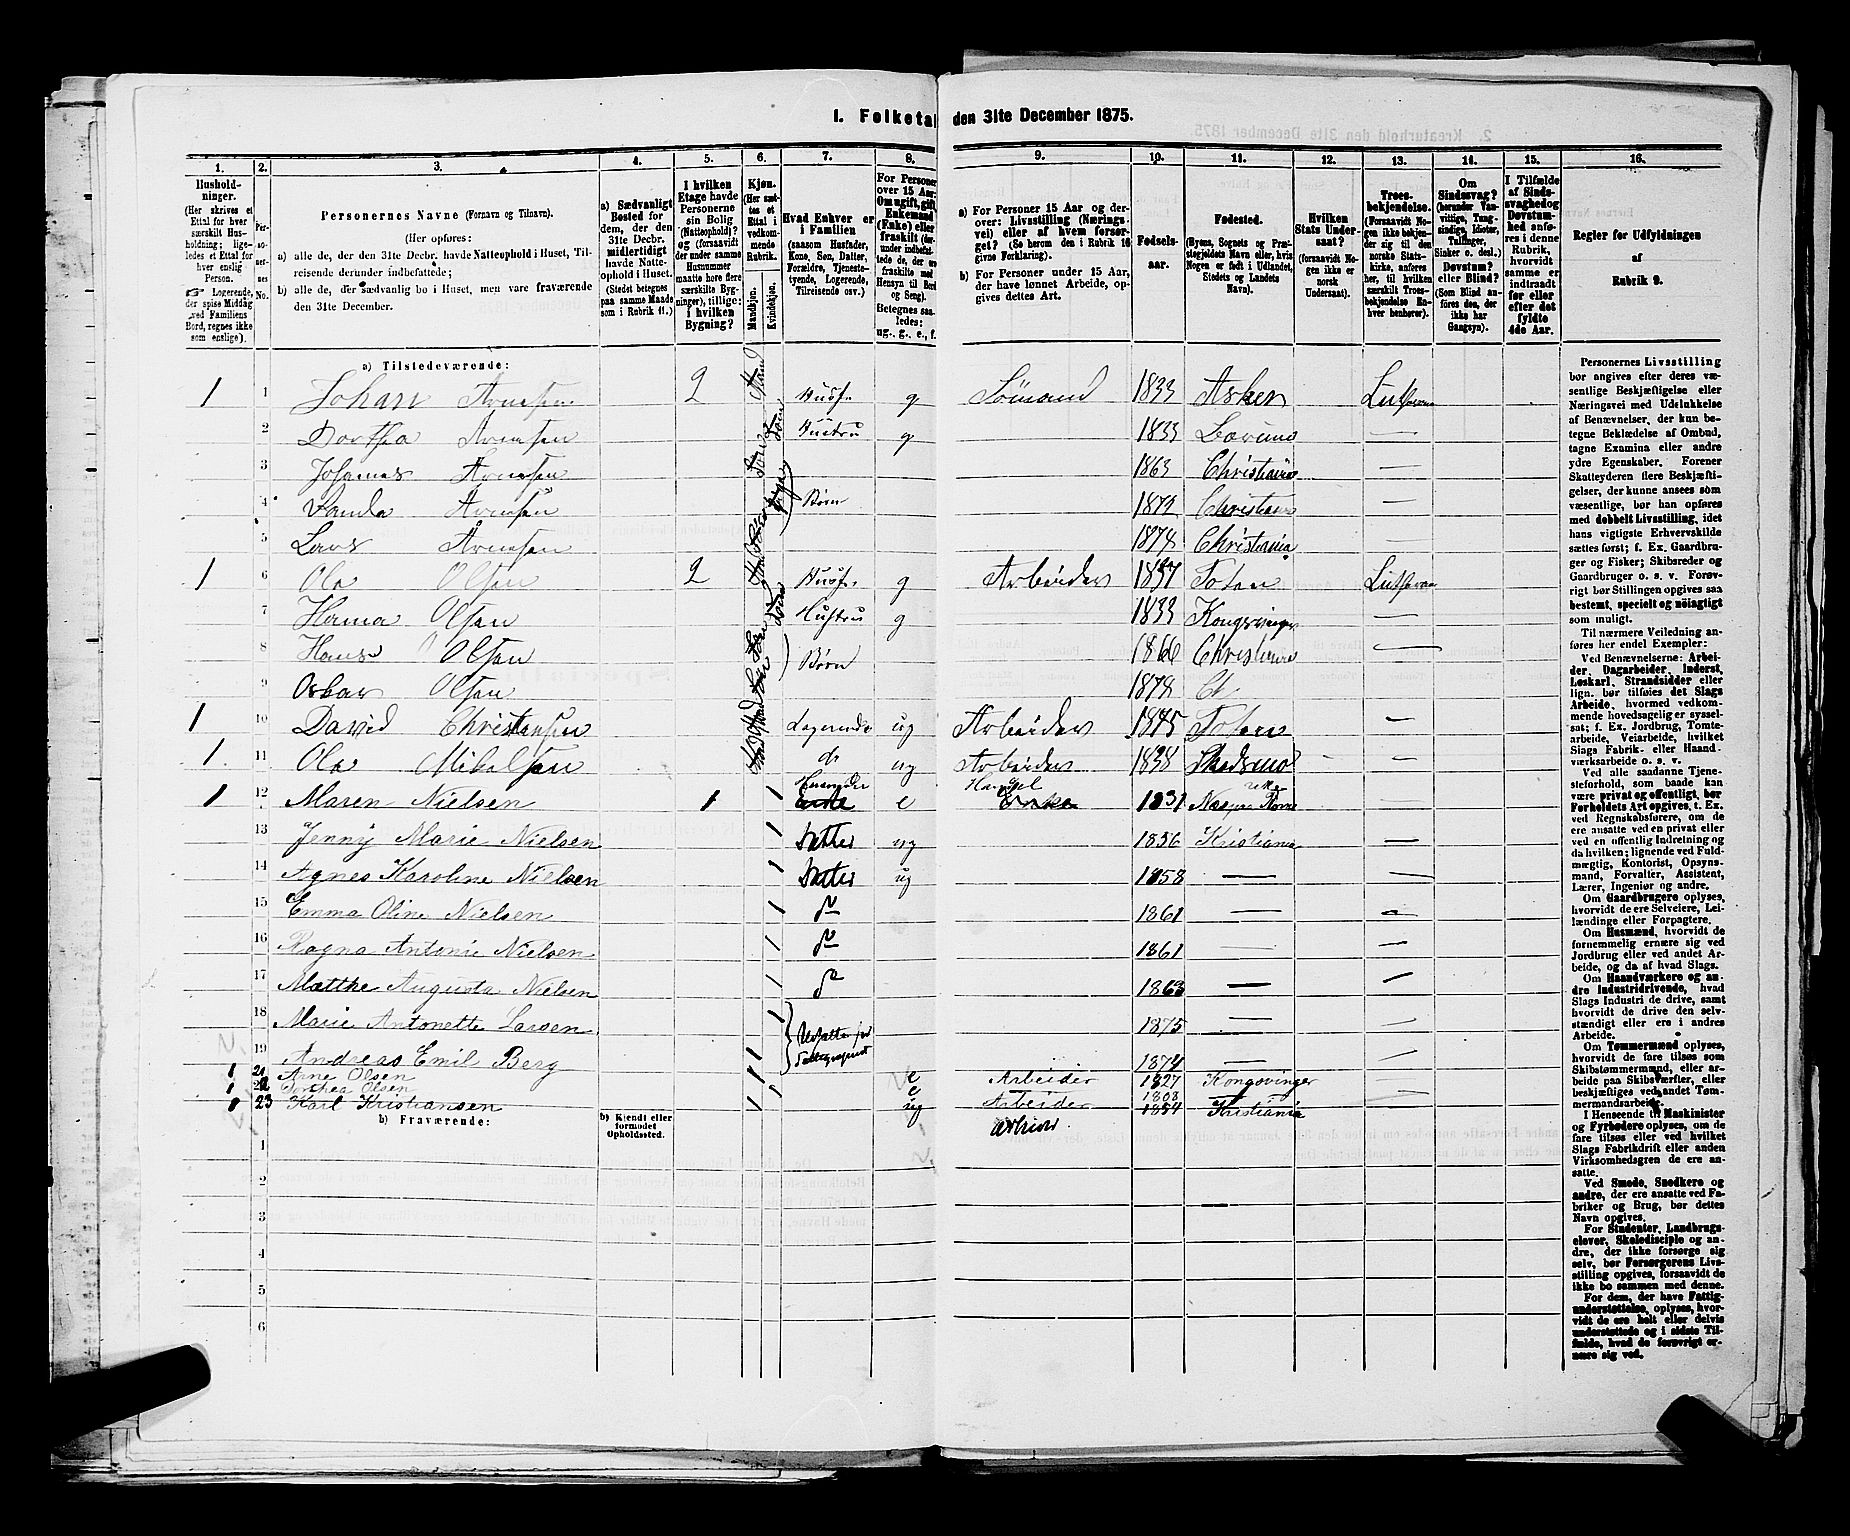 1. Folketal den 31te December 1875.
1. 2. 3. 4. 5. 6. 7. 8. 9. 10. 11. 12. 13. 14. 15. 16.
Husholdninger. (Her skrives et Ettal for hver særskilt Husholdning; ligeledes et Ettal for hver enslig Person. Logerende, der spise Middag ved Familiens Bord, regnes ikke som enslige).
Personernes No.
Personernes Navne (Fornavn og Tilnavn).
(Her opføres:
a) alle de, der den 31te Decbr. havde Natteophold i Huset, Tilreisende derunder indbefattede;
b) alle de, der sædvanlig bo i Huset, men vare fraværende den 31te December.
a) Sædvanligt Bosted for dem, der den 31te Decbr. midlertidigt havde Natteophold i Huset. (Stedet betegnes paa samme Maade som i Rubrik 11.)
I hvilken Etage havde Personerne sin Bolig (Natteophold)? og (forsaavidt der under samme Husnummer matte høre flere særskilte Bygninger), tillige: i hvilken Bygning?
Kjøn. (Her sættes et Ettal i vedkommende Rubrik. Mandkjøn. Kvindekjøn.
Hvad Enhver er i Familien (saasom Husfader, Kone, Søn, Datter, Forældre, Tjenestetyende, Logerende, Tilreisende osv.)
For Personer over 15 Aar: Om ugift, gift, Enkemand (Enke) eller fraskilt (herunder indbefattede de, der ere fraskilte med Hensyn til Bord og Seng). Betegnes saaledes: ug., g., e., f.
a) For Personer 15 Aar og derover: Livsstilling (Næringsvei) eller af hvem forsørget? (Se herom den i Rubrik 16 givne Forklaring).
b) For Personer under 15 Aar, der have lønnet Arbeide, opgives dettes Art.
Fødselsaar.
Fødested. (Byens, Sognets og Præstegjeldets Navn eller, hvis Nogen er født i Udlandet, Stedets og Landets Navn).
Hvilken Stats Undersaat? (forsaavidt Nogen ikke er norsk Undersaat).
Troesbekjendelse. (Forsaavidt Nogen ikke bekjender sig til den norske Statskirke, anføres her, til hvilken særskilt Troesbekjendelse Enhver henhører).
Om Sindssvag? (herunder Vanvittige, Tungsindige, Idioter, Tullinger, Sinker o. desl.) Døvstum? eller Blind? (Som Blind anføres den, der ikke har Gangsyn).
I Tilfælde af Sindssvaghed og Døvstumhed anføres i denne Rubrik, hvorvidt samme er indtraadt før eller efter det fyldte 4de Aar.
Regler for Udfyldningen af Rubrik 9.
a) Tilstedeværende:
1 1 Johan Arnesen 2 Mand Husf. g Sömand 1833 Asker Lutheran
2 Dorthea Arnesen Hustru g 1833 Bærums —
3 Johannes Arnesen 1863 Christiania —
4 Arnesen Børn 1872 Christiania —
5 Arnesen 1874 Christiania —
1 6 Ole Olsen 2 Husf. g Arbeider 1837 Toten Lutheran
7 Olsen Hustru g 1833 Kongsvinger —
8 Hans Olsen Børn 1866 Christiania —
9 Oskar Olsen 1874 Ch
1 10 David Christensen Logerende ug Arbeider 1845 Toten —
1. 11 Ole Mikelsen do ug Arbeider 1838 Skedsmo —
1 12 Maren Nielsen 1 1 e Enke 1831 —
13 Jenny Marie Nielsen 1 Datter ug 1856 Kristiania —
14 Agnes Karoline Nielsen 1 Datter ug 1858 — —
15 Emma Oline Nielsen 1 do 1861 — —
16 Ragna Antonie Nielsen 1 do 1861 — —
17 Matthe Augusta Nielsen 1 do 1863 — —
18 Marie Antonette Larsen 1 1875 — —
19 Andreas Emil Berg 1 1874 — —
1 21 Arne Olsen 1 e Arbeider 1827 Kongsvinger —
1 22 Dorthea Olsen 1 e 1808
1 23 Karl Kristiansen 1 ug Arbeider 1854 Kristiania
b) Fraværende: b) Kjendt eller formodet Opholdssted.
1
2
3
4
5
6
Personernes Livsstilling bør angives efter deres væsentlige Beskjæftigelse eller Næringsvei med Udelukkelse af Benævnelser, der kun betegne Beklædelse af Ombud, tagne Examina eller andre ydre Egenskaber. Forener Skatteyderen flere Beskjæftigelser, der kunne ansees som væsentlige, bør han opføres med dobbelt Livsstilling, idet hans vigtigste Erhvervskilde sættes først; f. Ex. Gaardbruger og Fisker; Skibsreder og Gaardbruger o. s. v. Forøvrigt bør Stillingen opgives saa bestemt, specielt og nøiagtigt som muligt.
Til nærmere Veiledning anføres her endel Exempler:
Ved Benævnelserne: Arbeider, Dagarbeider, Inderst, Løskarl, Strandsidder eller lign. bør tilføies det Slags Arbeide, hvormed vedkommende hovedsagelig er sysselsat; f. Ex. Jordbrug, Tomtearbeide, Veiarbeide, hvilket Slags Fabrik- eller Haandværksarbeide o. s. v.
Ved alle saadanne Tjenesteforhold, som baade kan være privat og offentligt, bør Forholdets Art opgives, t. Ex. ved Regnskabsførere, om de ere ansatte ved en privat eller ved en offentlig Indretning og da hvilken; lignende ved Fuldmægtig, Kontorist, Opsynsmand, Forvalter, Assistent, Lærer, Ingeniør og andre.
Om Gaardbrugere oplyses, hvorvidt de ere Selveiere, Leilændinge eller Forpagtere.
Om Husmænd, hvorvidt de fornemmelig ernære sig ved Jordbrug eller ved andet Arbeide, og da af hvad Slags.
Om Haandværkere og andre Industridrivende, hvad Slags Industri de drive, samt hvorvidt de drive den selvstændigt eller ere i andres Arbeide.
Om Tømmermænd oplyses, hvorvidt de fare tilsøs som Skibstømmermænd, eller arbeide paa Skibsværfter, eller beskjæftiges ved andet Tømmermandsarbeide.
I Henseende til Maskinister og Fyrbødere oplyses, om de fare tilsøs eller ved hvilket Slags Fabrikdrift eller anden Virksomhedsgren de ere ansatte.
Ved Smede, Snedkere og andre, der ere ansatte ved Fabriker og Brug, bør dettes Navn opgives.
For Studenter, Landbrugselever, Skoledisciple og andre, der ikke forsørge sig selv, bør Forsørgerens Livsstilling opgives, forsaavidt de ikke bo sammen med denne.
For dem, der have Fattigunderstøttelse, oplyses, hvorvidt de ere helt eller delvis understøttede og i sidste Tilfælde, hvad de forøvrigt ernære sig ved.